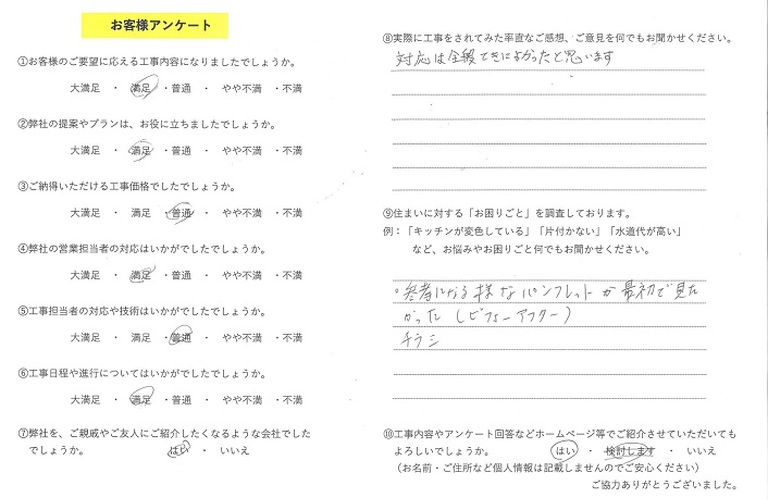 お客様アンケート
①お客様のご要望に応える工事内容になりましたでしょうか。
大満足 ・ 満足 ・普通 ・ やや不満 ・不満
②弊社の提案やプランは、お役に立ちましたでしょうか。
大満足 ・ 満足 ・普通 ・ やや不満 ・不満
③ご納得いただける工事価格でしたでしょうか。
大満足 ・ 満足 ・普通 ・ やや不満 ・不満
④弊社の営業担当者の対応はいかがでしたでしょうか。
大満足 ・ 満足 ・普通 ・ やや不満 ・不満
⑤工事担当者の対応や技術はいかがでしたでしょうか。
大満足 ・ 満足 ・普通 ・ やや不満 ・不満
⑥工事日程や進行についてはいかがでしたでしょうか。
大満足 ・ 満足 ・普通 ・ やや不満 ・不満
⑦弊社を、ご親戚やご友人にご紹介したくなるような会社でした
でしょうか。 はい ・ いいえ
⑧実際に工事をされてみた率直なご感想、ご意見を何でもお聞かせください。
対応は全般てきによかったと思います
⑨住まいに対する「お困りごと」を調査しております。
例：「キッチンが変色している」「片付かない」「水道代が高い」
など、お悩みやお困りごと何でもお聞かせください。
・参考になる様なパンフレットが最初で見た
かった（ビフォーアフター）
チラシ
⑩工事内容やアンケート回答などホームページ等でご紹介させていただいても
よろしいでしょうか。 はい ・ 検討します ・ いいえ
（お名前・ご住所など個人情報は記載しませんのでご安心ください）
ご協力ありがとうございました。